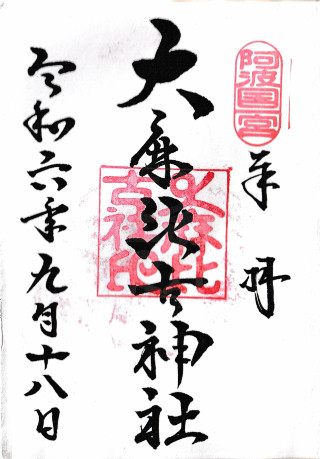 阿波国一宮
奉拝
大麻比古神社
大麻比古神社印
令和六年九月十八日